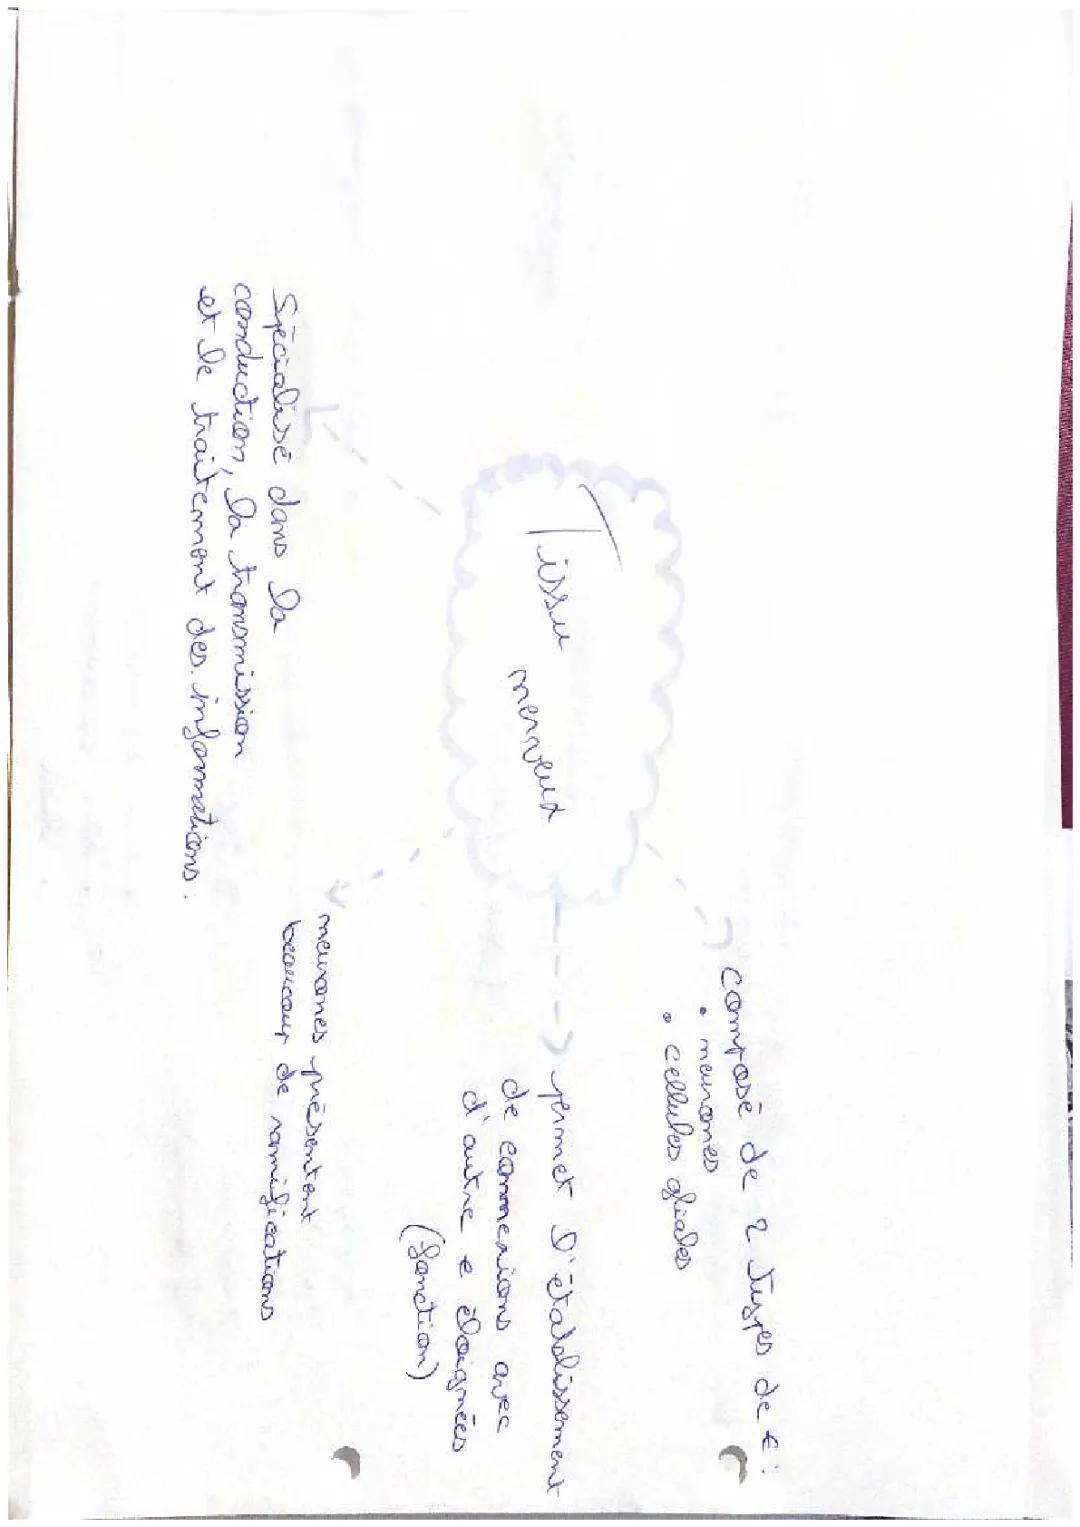 Tissu nerveux
composé de 2 types de €:
• neurones
• cellules gliales
permet l'établissement
de connexions avec
d'autre e éloignées
(fonction)
neurones présentent
beaucoup de ramifications
Spécialisé dans la
conduction, la transmission
et le traitement des informations.